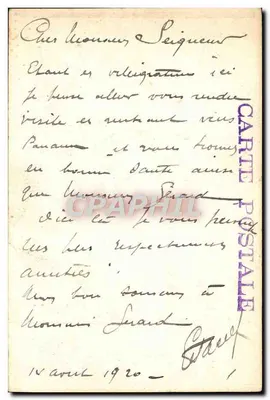 Cher Monsieur Seigneur
Etant en villégiature ici
je pense aller vous rendre
visite en rentrant vers
Paname et vous trouver
en bonne santé ainsi
que Monsieur Gérard
D'ici là je vous présente
mes plus respectueuses
amitiés
Mon bon souvenir à
Monsieur Gérard
14 août 1920 -
CARTE POSTALE
CPAPHIL